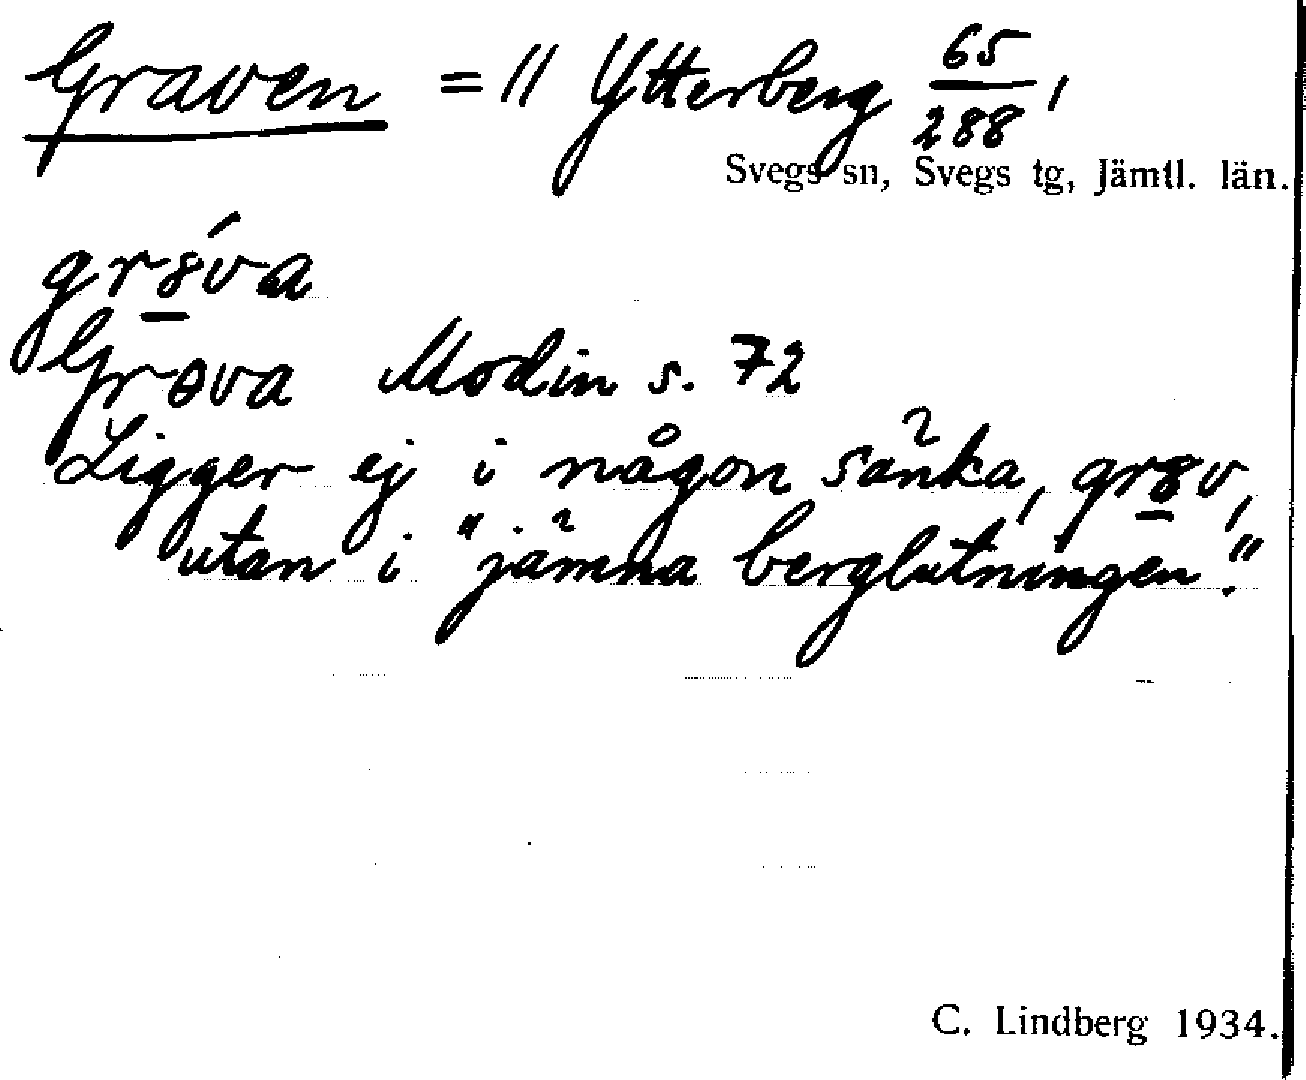 Graven = // Ytterberg 65/288,
Svegs sn, Svegs tg, Jämtl. län.
gr8́va
Grova Modin s. 72
Ligger ej i någon sänka, gr8v,
utan i "jämna berglutningen."
C. Lindberg 1934.